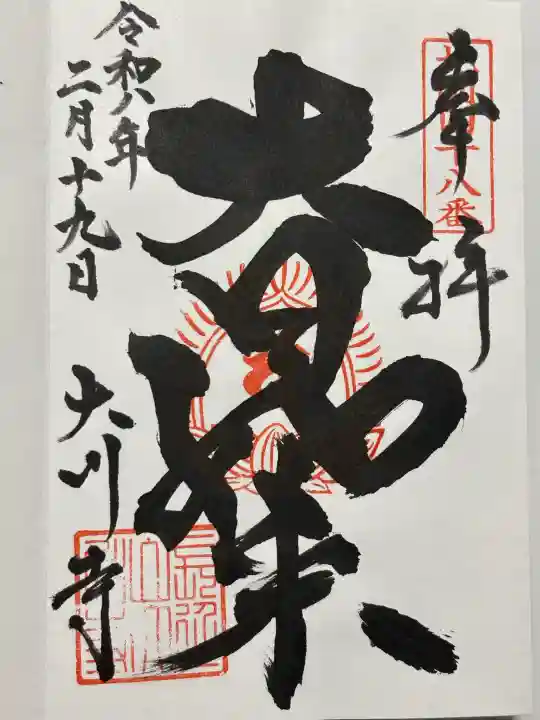 奉拝
十八番
大日如来
令和八年
二月十九日
大川寺